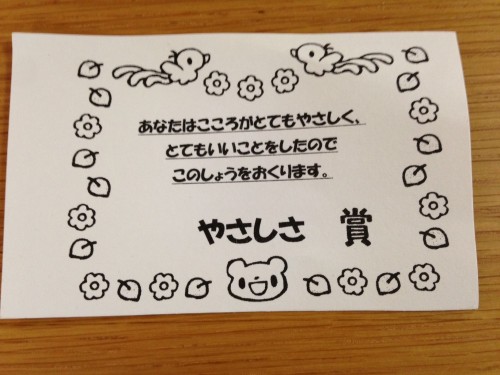 あなたはこころがとてもやさしく、
とてもいいことをしたので
このしょうをおくります。
やさしさ 賞